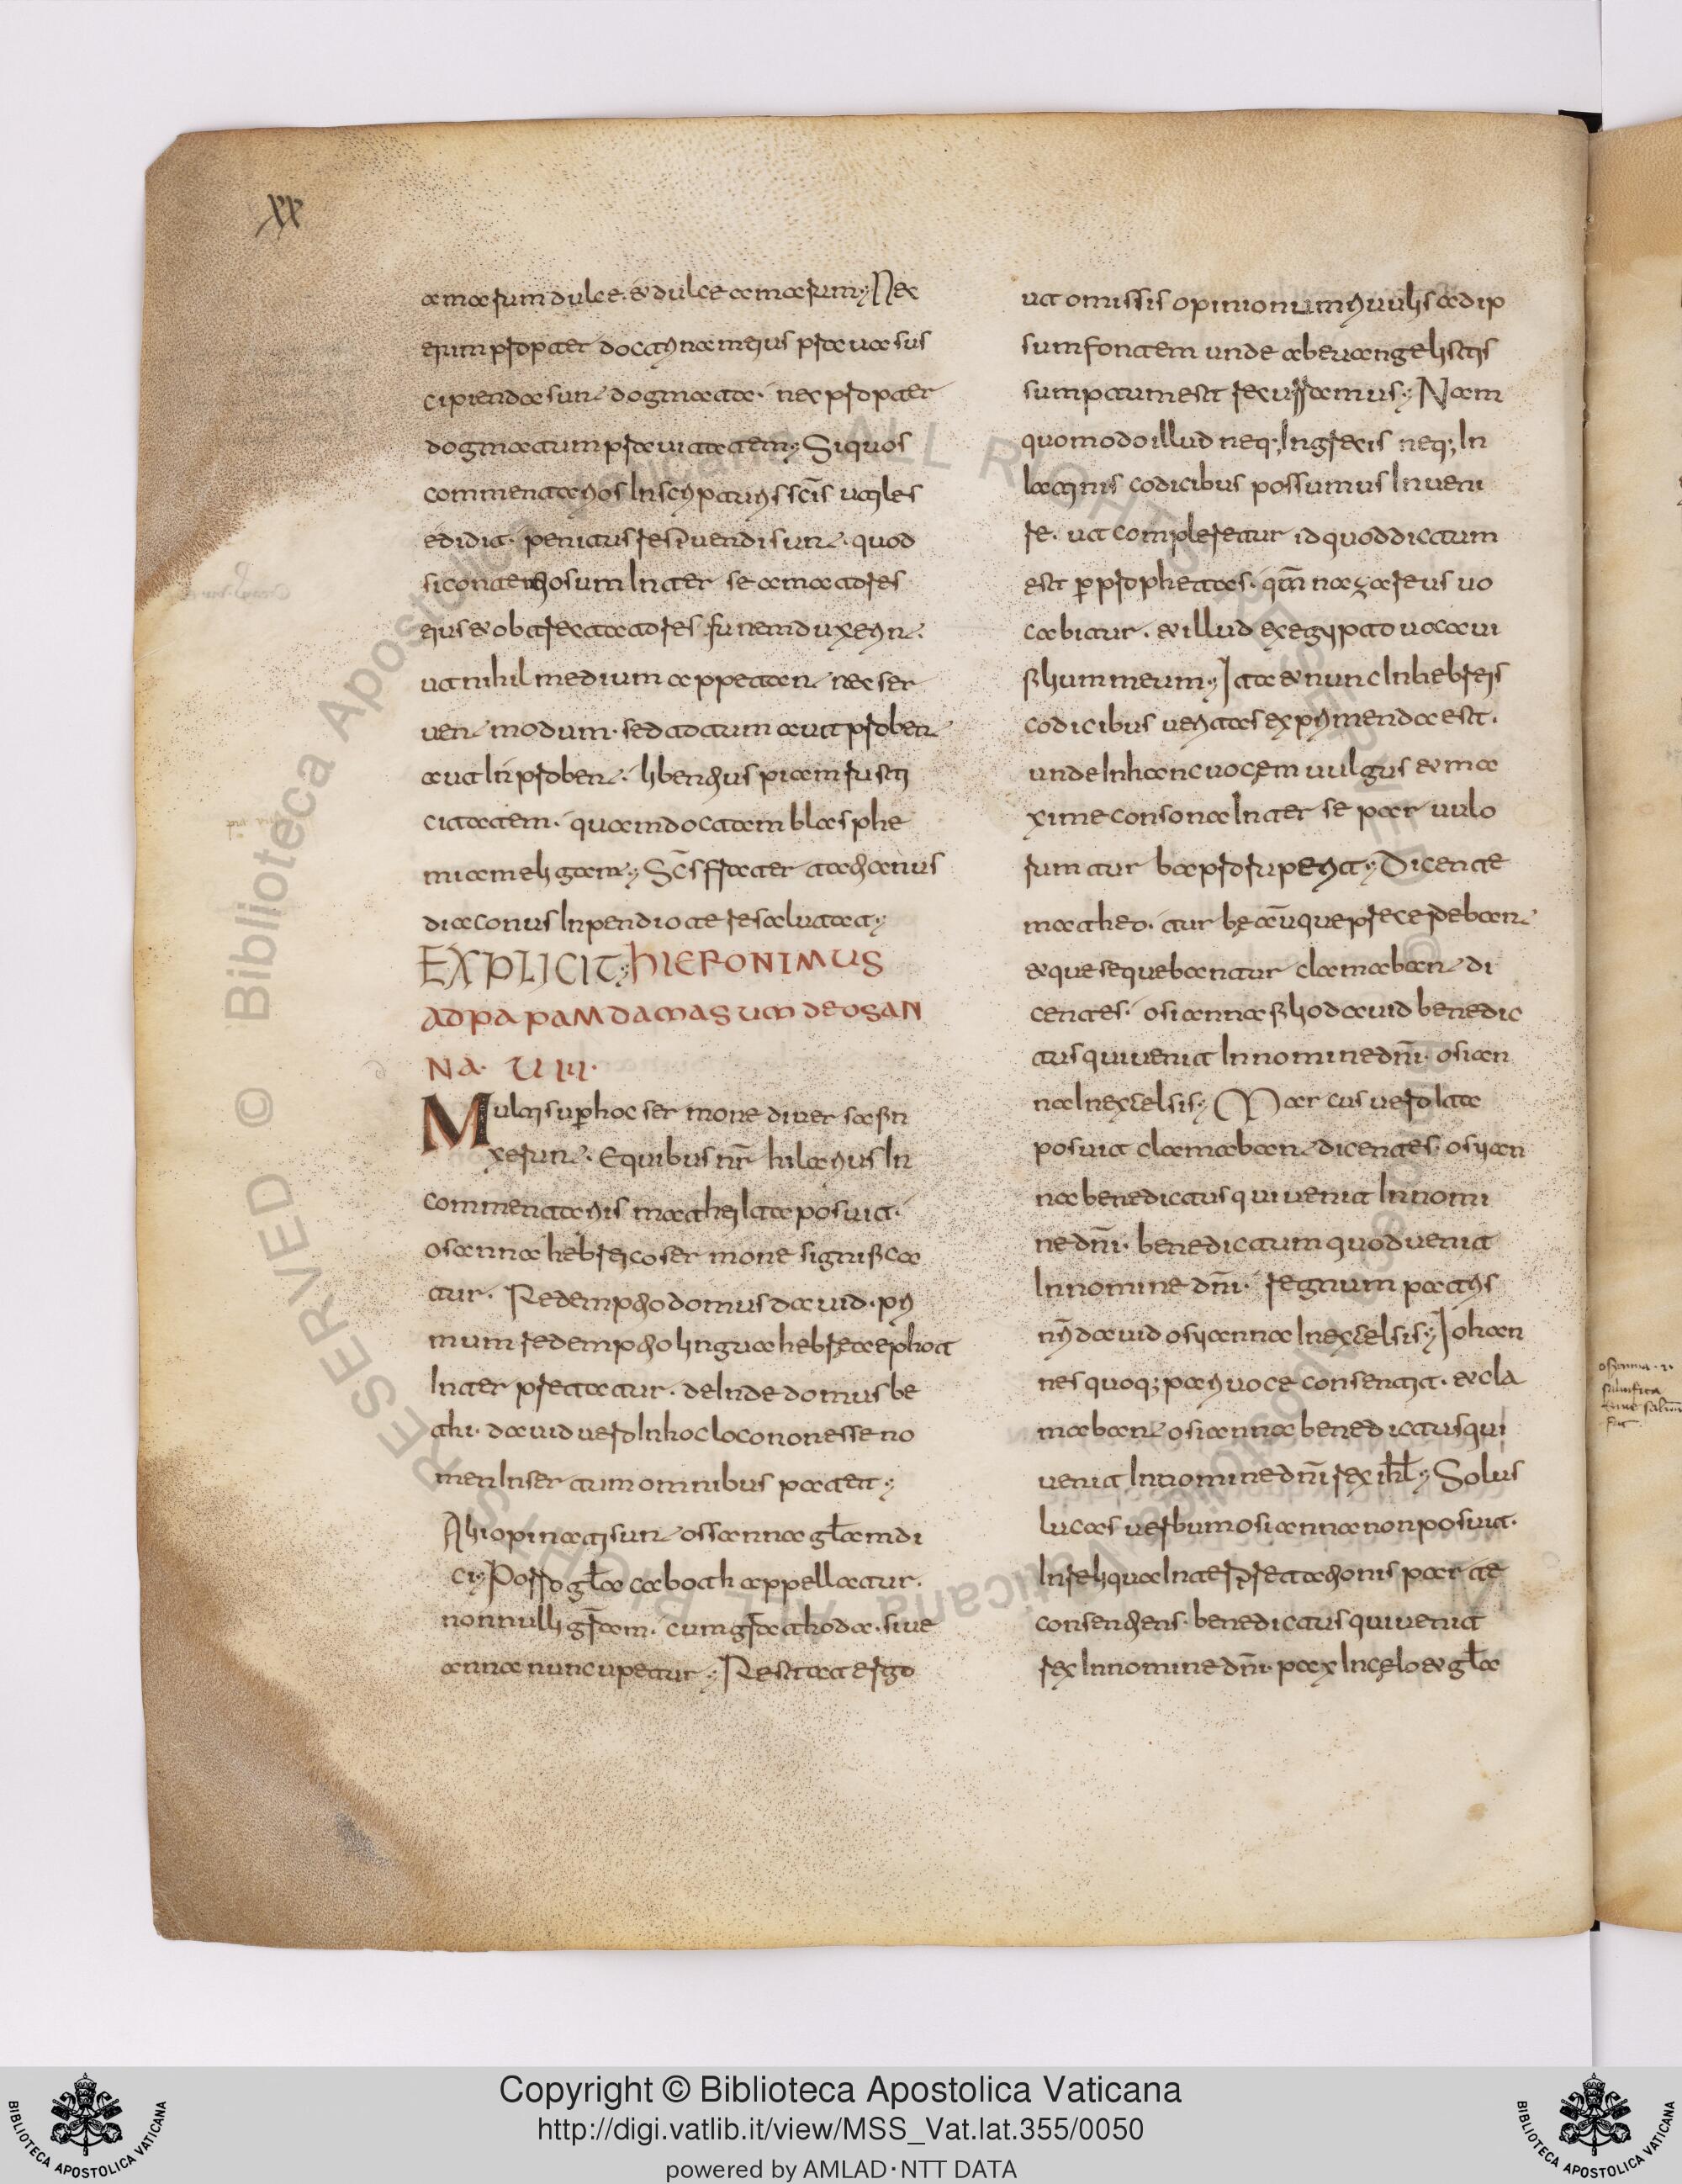 XX
amarum dulce. & dulce amarum; Nec
enim propter doctrinam eius praua sus
cipienda sunt dogmata. nec propter
dogmatum prauitatem; Si quos
commentarios in scripturis scis utiles
edidit. penitus respuendi sunt. quod
si contentiosum inter se amatores
eius & obtrectatores funem duxerint.
ut nihil medium appetant nec ser
uent modum. sed totum aut probent
aut inprobent. libentius piam rusti
citatem. quam doctam blasphe
miam eligam; Scs frater tatianus
diaconus inpendio te resalutat;
EXPLICIT; HIERONIMUS
AD PAPAM DAMASUM DE OSAN
NA. VIII.
Multi super hoc sermone diuersa fin
xerunt. E quibus nr hilarius in
commentariis mathei ita posuit.
osanna hebreico sermone significa
tur. Redemptio domus dauid. pri
mum redemptio lingua hebrea ephot
interpretatur. deinde domus be
thi. dauid uero in hoc loco non esse no
men insertum omnibus patet;
Alii opinati sunt ossanna głam di
ci; Porro gła caboth appellatur.
nonnulli gram. cum gra thoda. siue
anna nuncupetur; Restat ergo
ut omissis opinionum riuulis ad ip
sum fontem unde ab euangelistis
sumptum est recurramus; Nam
quomodo illud neq; in grecis neq; in
latinis codicibus possumus inueni
re. ut compleretur id quod dictum
est p prophetas. qm nazareus uo
cabitur. & illud ex egypto uocaui
filium meum; Ita & nunc in hebreis
codicibus ueritas exprimenda est.
unde in hanc uocem uulgus & ma
xime consona inter se paruulo
rum turba proruperit; Dicente
matheo. turbę aū que precedebant
& que sequebantur clamabant di
centes. osianna filio dauid benedic
tus qui uenit in nomine dni. osian
na in excelsis; Marcus uero ita
posuit clamabant dicentes. osyan
na benedictus qui uenit in nomi
ne dni. benedictum quod uenit
in nomine dni. regnum patris
nri dauid osyanna in excelsis; Iohan
nes quoq; pari uoce consentit. & cla
mabant osianna benedictus qui
uenit in nomine dni rex ihl; Solus
lucas uerbum osianna non posuit.
in reliqua interpretationis parte
consentiens. benedictus qui uenit
rex in nomine dni. pax in cęlo & gła
Copyright © Biblioteca Apostolica Vaticana
http://digi.vatlib.it/view/MSS_Vat.lat.355/0050
powered by AMLAD·NTT DATA
BIBLIOTECA APOSTOLICA VATICANA
BIBLIOTECA APOSTOLICA VATICANA